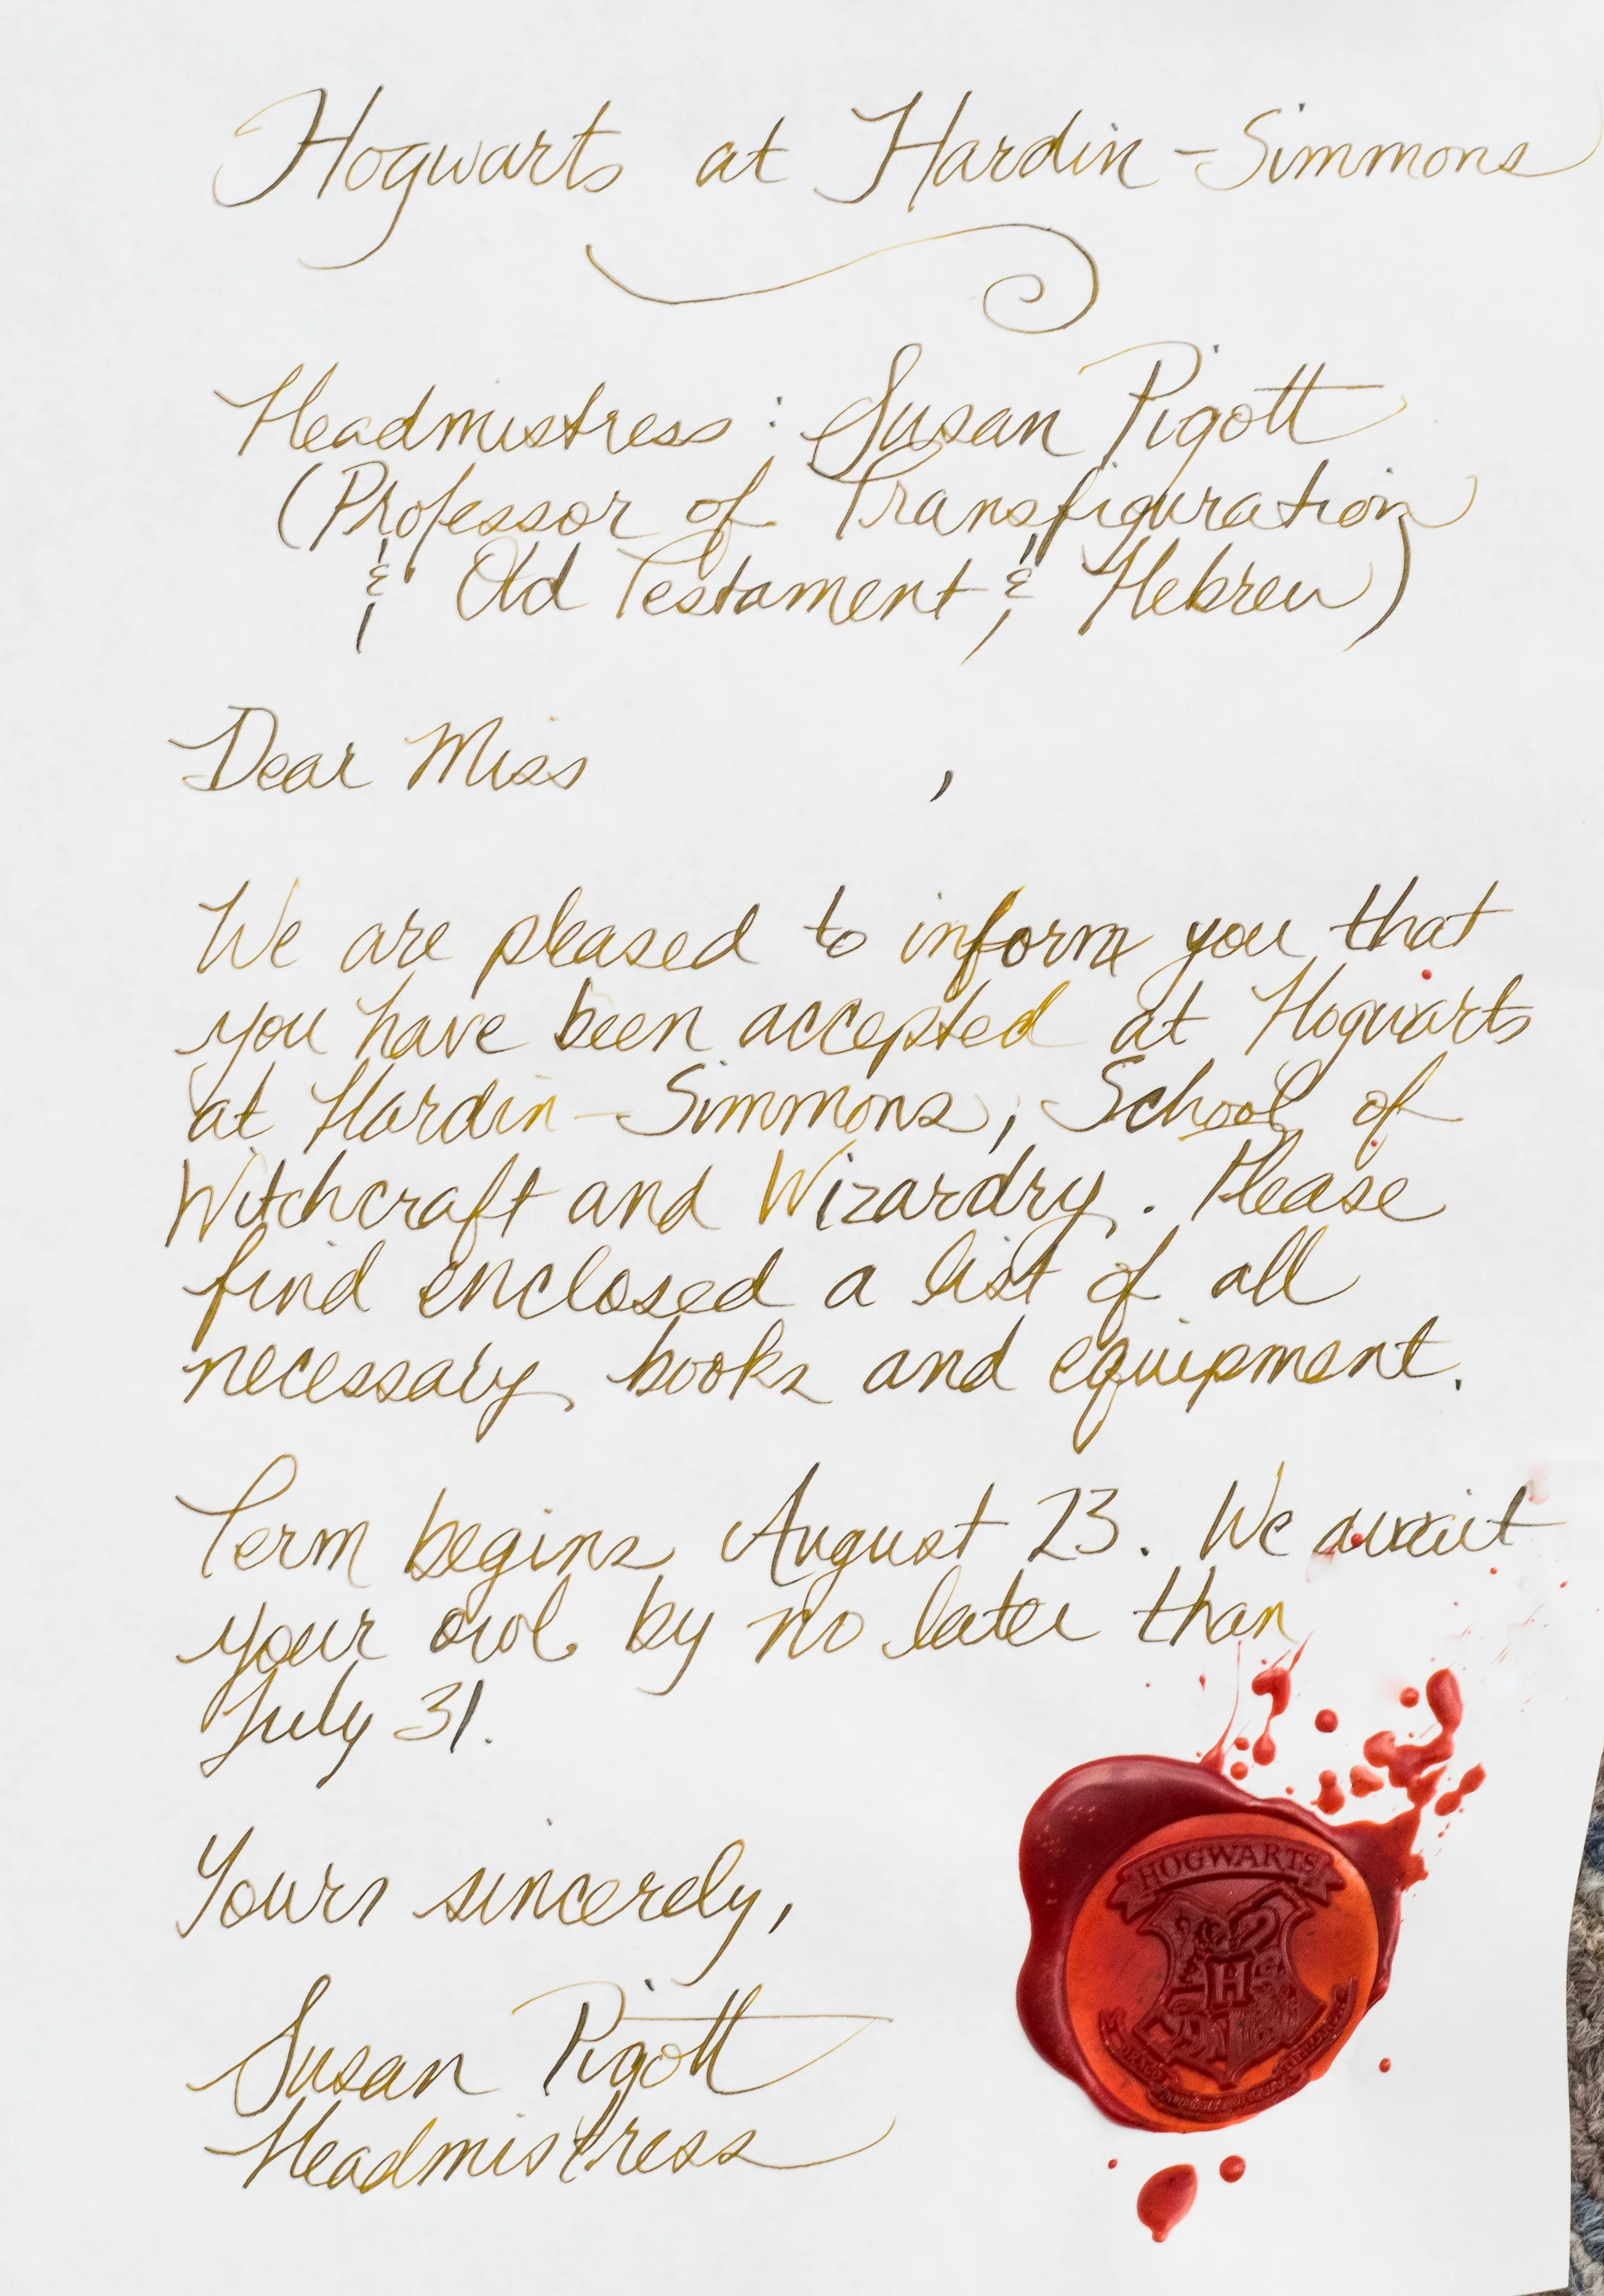 Hogwarts at Hardin-Simmons
Headmistress: Susan Pigott
(Professor of Transfiguration
& Old Testament & Hebrew)
Dear Miss ,
We are pleased to inform you that
you have been accepted at Hogwarts
at Hardin-Simmons, School of
Witchcraft and Wizardry. Please
find enclosed a list of all
necessary books and equipment.
Term begins August 23. We await
your owl by no later than
July 31.
Yours sincerely,
Susan Pigott
Headmistress
HOGWARTS
H